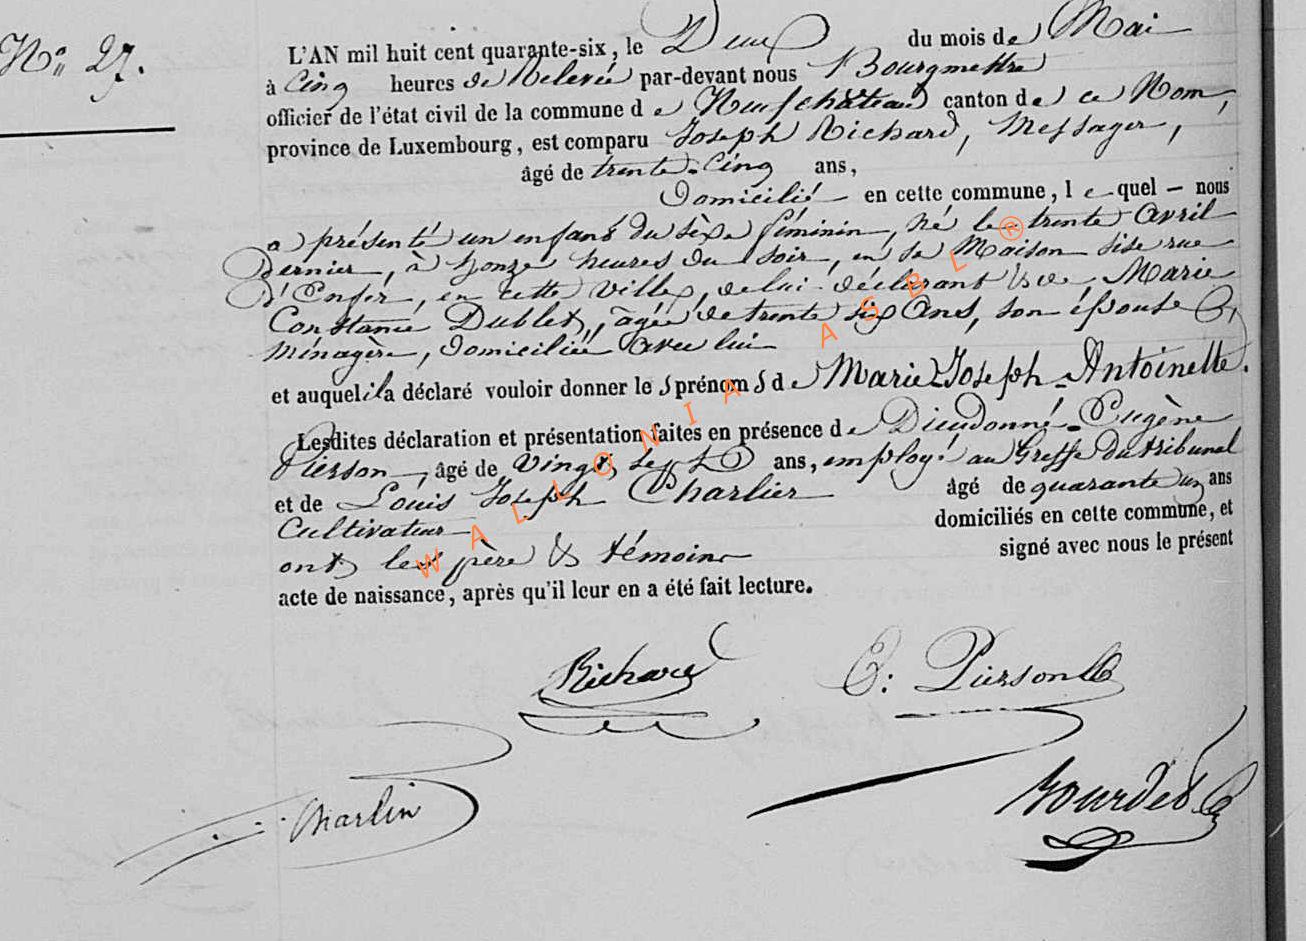 N° 27.
L'AN mil huit cent quarante-six, le Deux du mois de Mai
à Cinq heures de Relevée par-devant nous Bourgmestre
officier de l'état civil de la commune de Neufchâteau canton de ce Nom,
province de Luxembourg, est comparu Joseph Richard, Messager,
âgé de trente-Cinq ans,
Domicilié en cette commune, lequel — nous
a présenté un enfant du sèxe féminin, né le trente Avril
Dernier, à honze heures du soir, en sa Maison sise rue
d'Enfer, en cette Ville, de lui déclarant & de Marie
Constance Dublet, âgée de trente six Ans, son épouse
Ménagère, domiciliée avec lui
et auquel il a déclaré vouloir donner les prénoms de Marie-Joseph-Antoinette.
Lesdites déclaration et présentation faites en présence de Dieudonné-Eugène
Pierson, âgé de Vingt sept ans, employé au Greffe du tribunal
et de Louis Joseph Charlier âgé de quarante un ans
Cultivateur domiciliés en cette commune, et
ont les père & témoins signé avec nous le présent
acte de naissance, après qu'il leur en a été fait lecture.
Richard E: Pierson
Charlier
WALLONIA ASBL ®